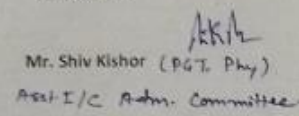 Mr. Shiv Kishor (PGT. Phy)
Asst I/C Adm. Committee